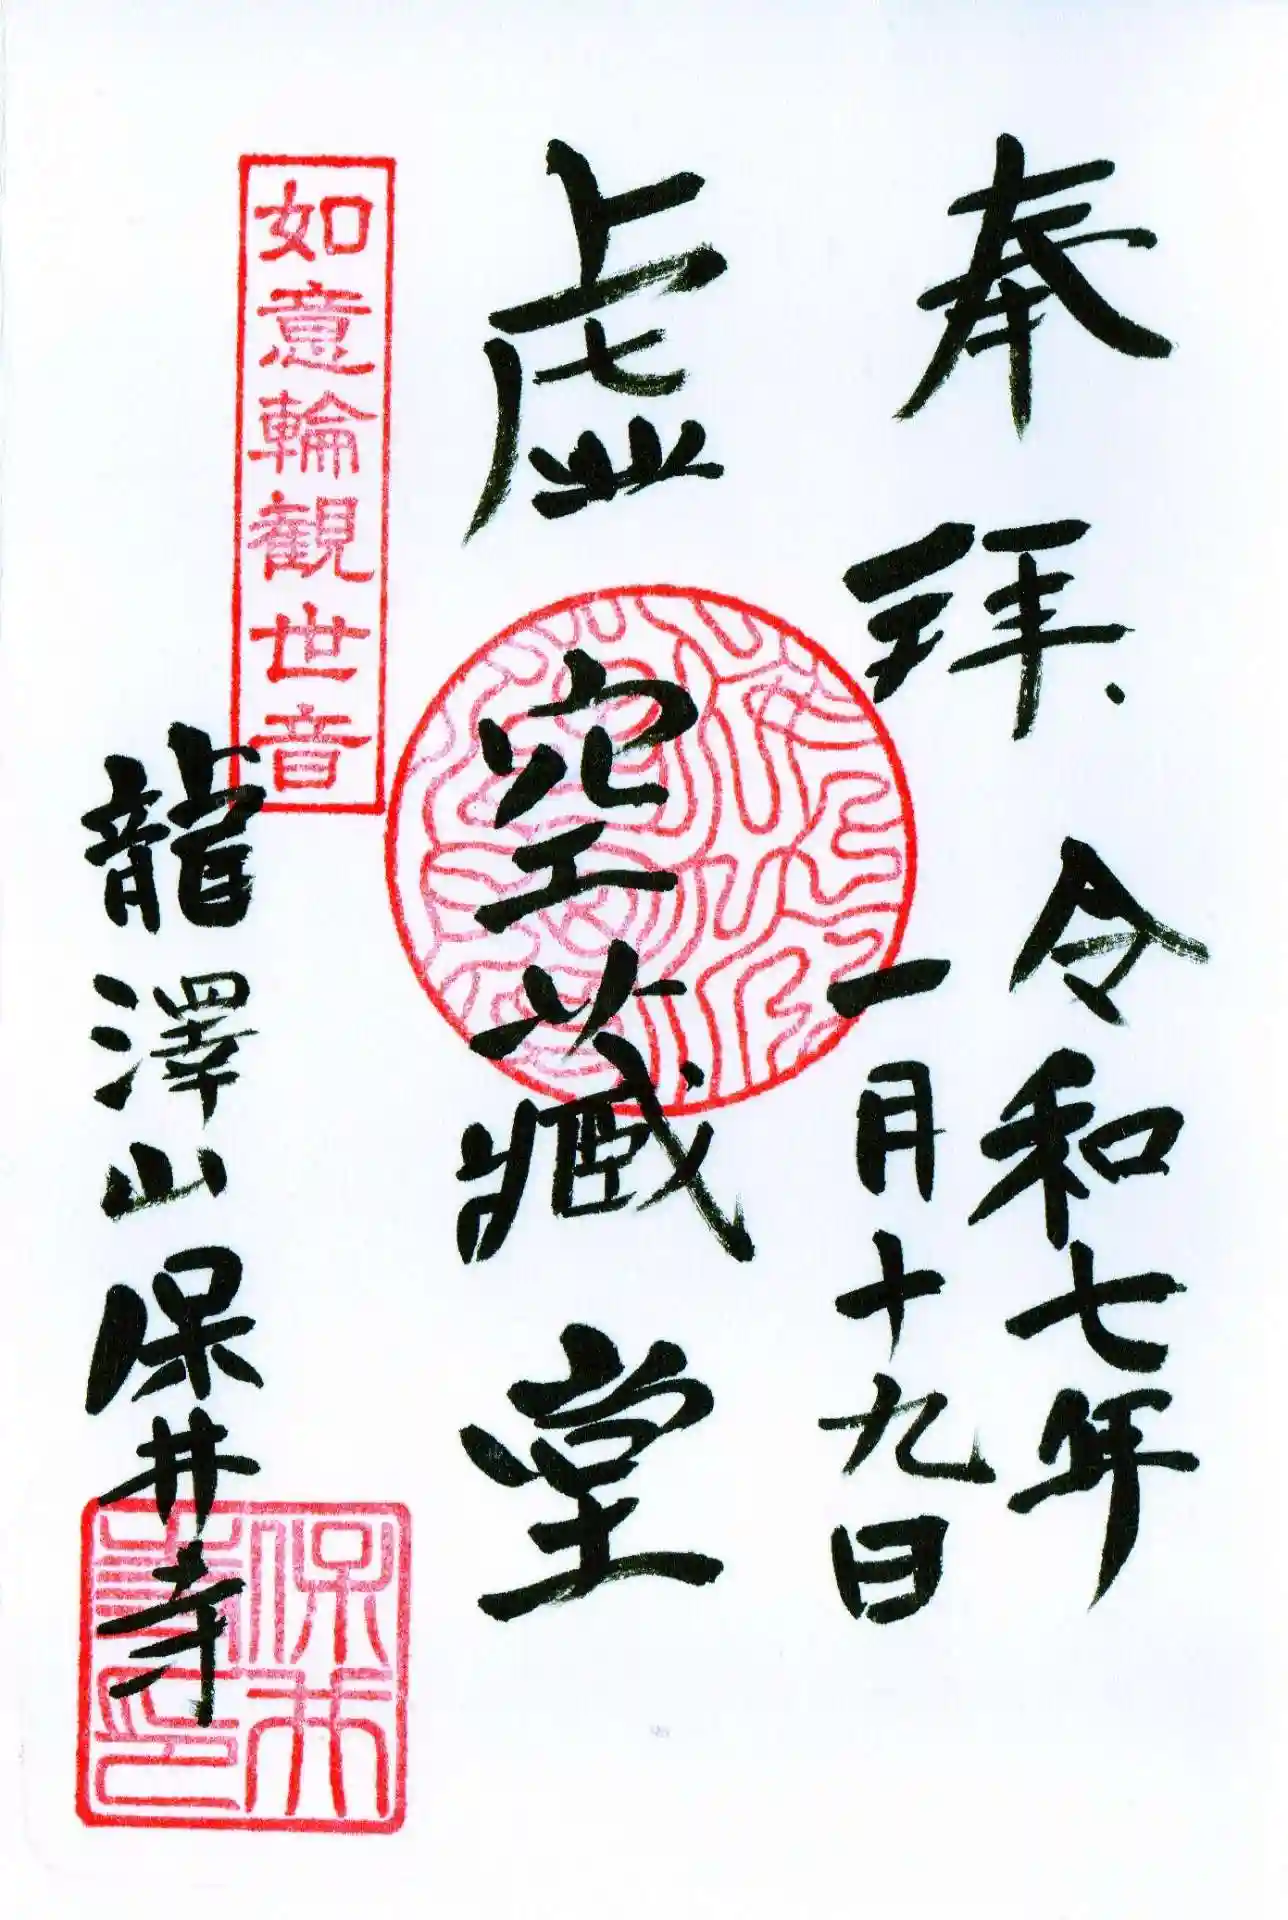 奉拝
令和七年
一月十九日
虚空蔵堂
如意輪観世音
龍澤山保井寺
保井
寺印